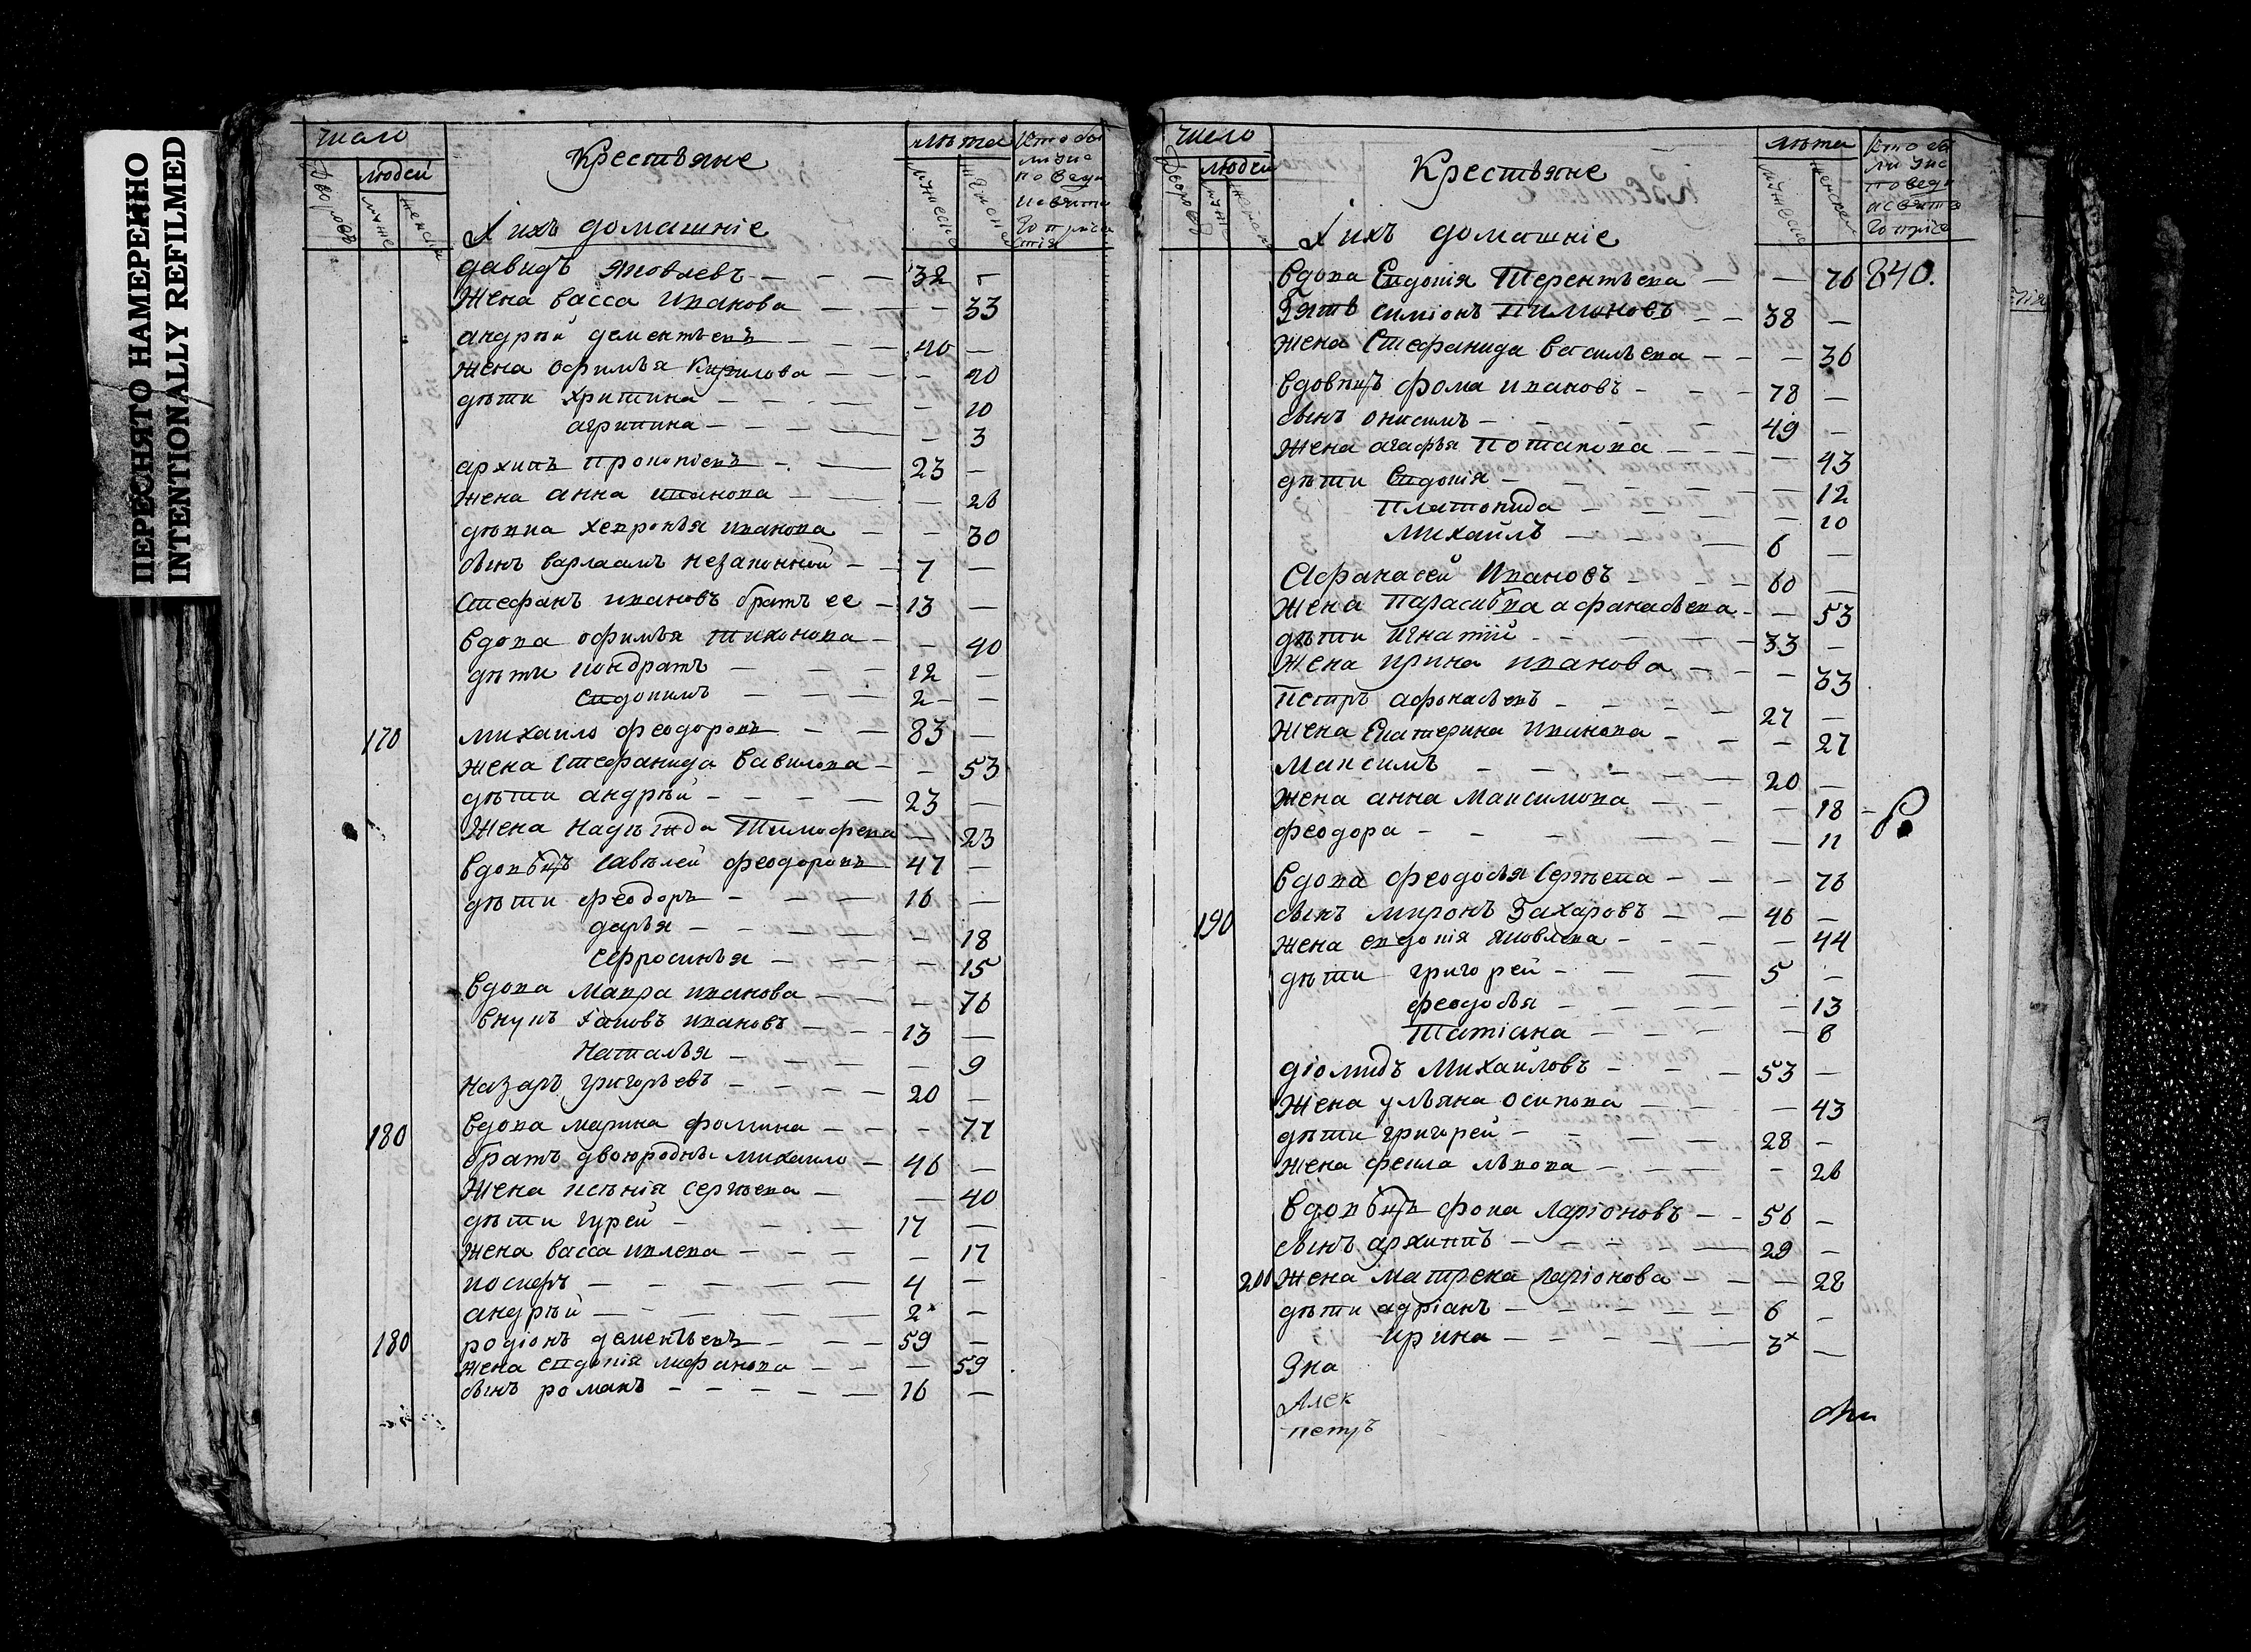 ПЕРЕСНЯТО НАМЕРЕННО
INTENTIONALLY REFILMED
число
людей
Дворовъ
муже
женска
Крестьяне
И ихъ домашніе
лѣта
мужеска
женска
Кто бы
ли у ис
поведи
и святы
го прича
тія
давидъ яковлевъ — — — 32 —
Жена васса иванова — — — 33
андрѣй дементьевъ — — — 40 —
жена офимья Кирилова — — — 20
дѣти христина — — — — 10
агрипина — — — — — 3
архипъ прокопіевъ — — 23 —
жена анна иванова — — — 26
дѣвка хевронья иванова — — 30
сынъ варлаамъ незаконной — — 7 —
Стефанъ ивановъ братъ ее — 13 —
вдова офимья тихонова — — 40
дѣти кондратъ — — — 12 —
евдокимъ — — — 2 — —
170 михаило феодоровъ — — 83 —
жена стефанида вавилова — — 53
дѣти андрѣй — — — — 23 —
жена надѣжда Тимофеева — 23
вдовецъ савѣлей феодоровъ 47 —
дѣти феодоръ — — — 16 —
дарья — — — — — 18
ефросинья — — — — 15
вдова мавра иванова — — — 76
внукъ яковъ ивановъ — — — 13 —
Наталья — — — — 9
назаръ григорьевъ — — — 20 —
180 вдова марина фомина — — — 77
братъ двоюроднъ михаило — 46 —
жена ксѣнія сергѣева — — 40
дѣти гурей — — — 17 —
жена васса ивлева — — — — 17
иосифъ — — — — — 4 —
андрѣй — — — — — 2 —
180 родіонъ дементьевъ — — — 59 —
жена евдокія — — — 59
сынъ романъ — — — — — 16 —
число
людей
Дворовъ
муже
женска
Крестьяне
И ихъ домашніе
лѣта
мужеска
женска
Кто бы
ли у ис
поведи
и святы
го приса
вдова Евдокія Терентьева — — 76 840.
Зять симіонъ пимоновъ — — 38 —
жена Стефанида васильева — — — 36
вдовецъ фома ивановъ — — — 78 —
сынъ онисимъ — — — — 49 —
жена агафья потапова — — — — 43
дѣти Евдокія — — — — — 12
платонида — — — — 10
михайлъ — — — 6 —
Афанасей Ивановъ — — — 60 —
жена парасковья афанасьева — — 53
дѣти Игнатій — — — — 33 —
жена ирина иванова — — — 33
петръ афонасьевъ — — — — 27 —
жена Екатерина Иванова — — — 27
Максимъ — — — — — 20 —
жена анна Максимова — — — 18 —
феодора — — — — — — 11
вдова феодосья Сергѣева — — — 76
190 сынъ миронъ Захаровъ — — 46 —
жена евдокія яковлева — — — — 44
дѣти григорей — — — 5 —
феодосья — — — — — 13
Татіана — — — — — 8
діомидъ Михайловъ — — — 53 —
жена ульяна осипова — — — 43
дѣти григорей — — — — 28 —
жена фекла львова — — — — 26
вдовецъ фока ларіоновъ — — 56 —
сынъ архиппъ — — — — — 29 —
200 жена матрена ларіонова — — — 28
дѣти адріанъ — — — — — 6 —
ирина — — — — — 3 —
Яка
Алек
петръ